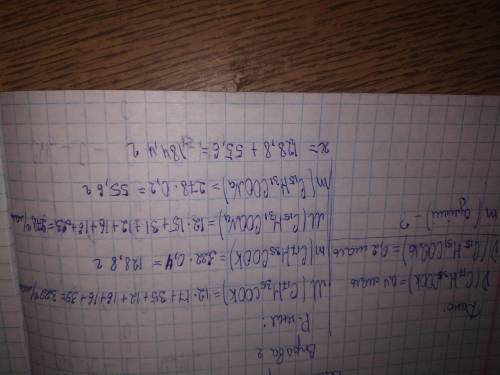 Вправа 2
Дано:
ν(C₁₇H₃₅COOK) = 0,4 моль
ν(C₁₅H₃₁COONa) = 0,2 моль
m(суміші) - ?
Р-ння:
M(C₁₇H₃₅COOK) = 12·17+35+12+16+16+39 = 322 г/моль
m(C₁₇H₃₅COOK) = 322 · 0,4 = 128,8 г
M(C₁₅H₃₁COONa) = 12·15+31+12+16+16+23 = 278 г/моль
m(C₁₅H₃₁COONa) = 278 · 0,2 = 55,6 г
x = 128,8 + 55,6 = 184,4 г